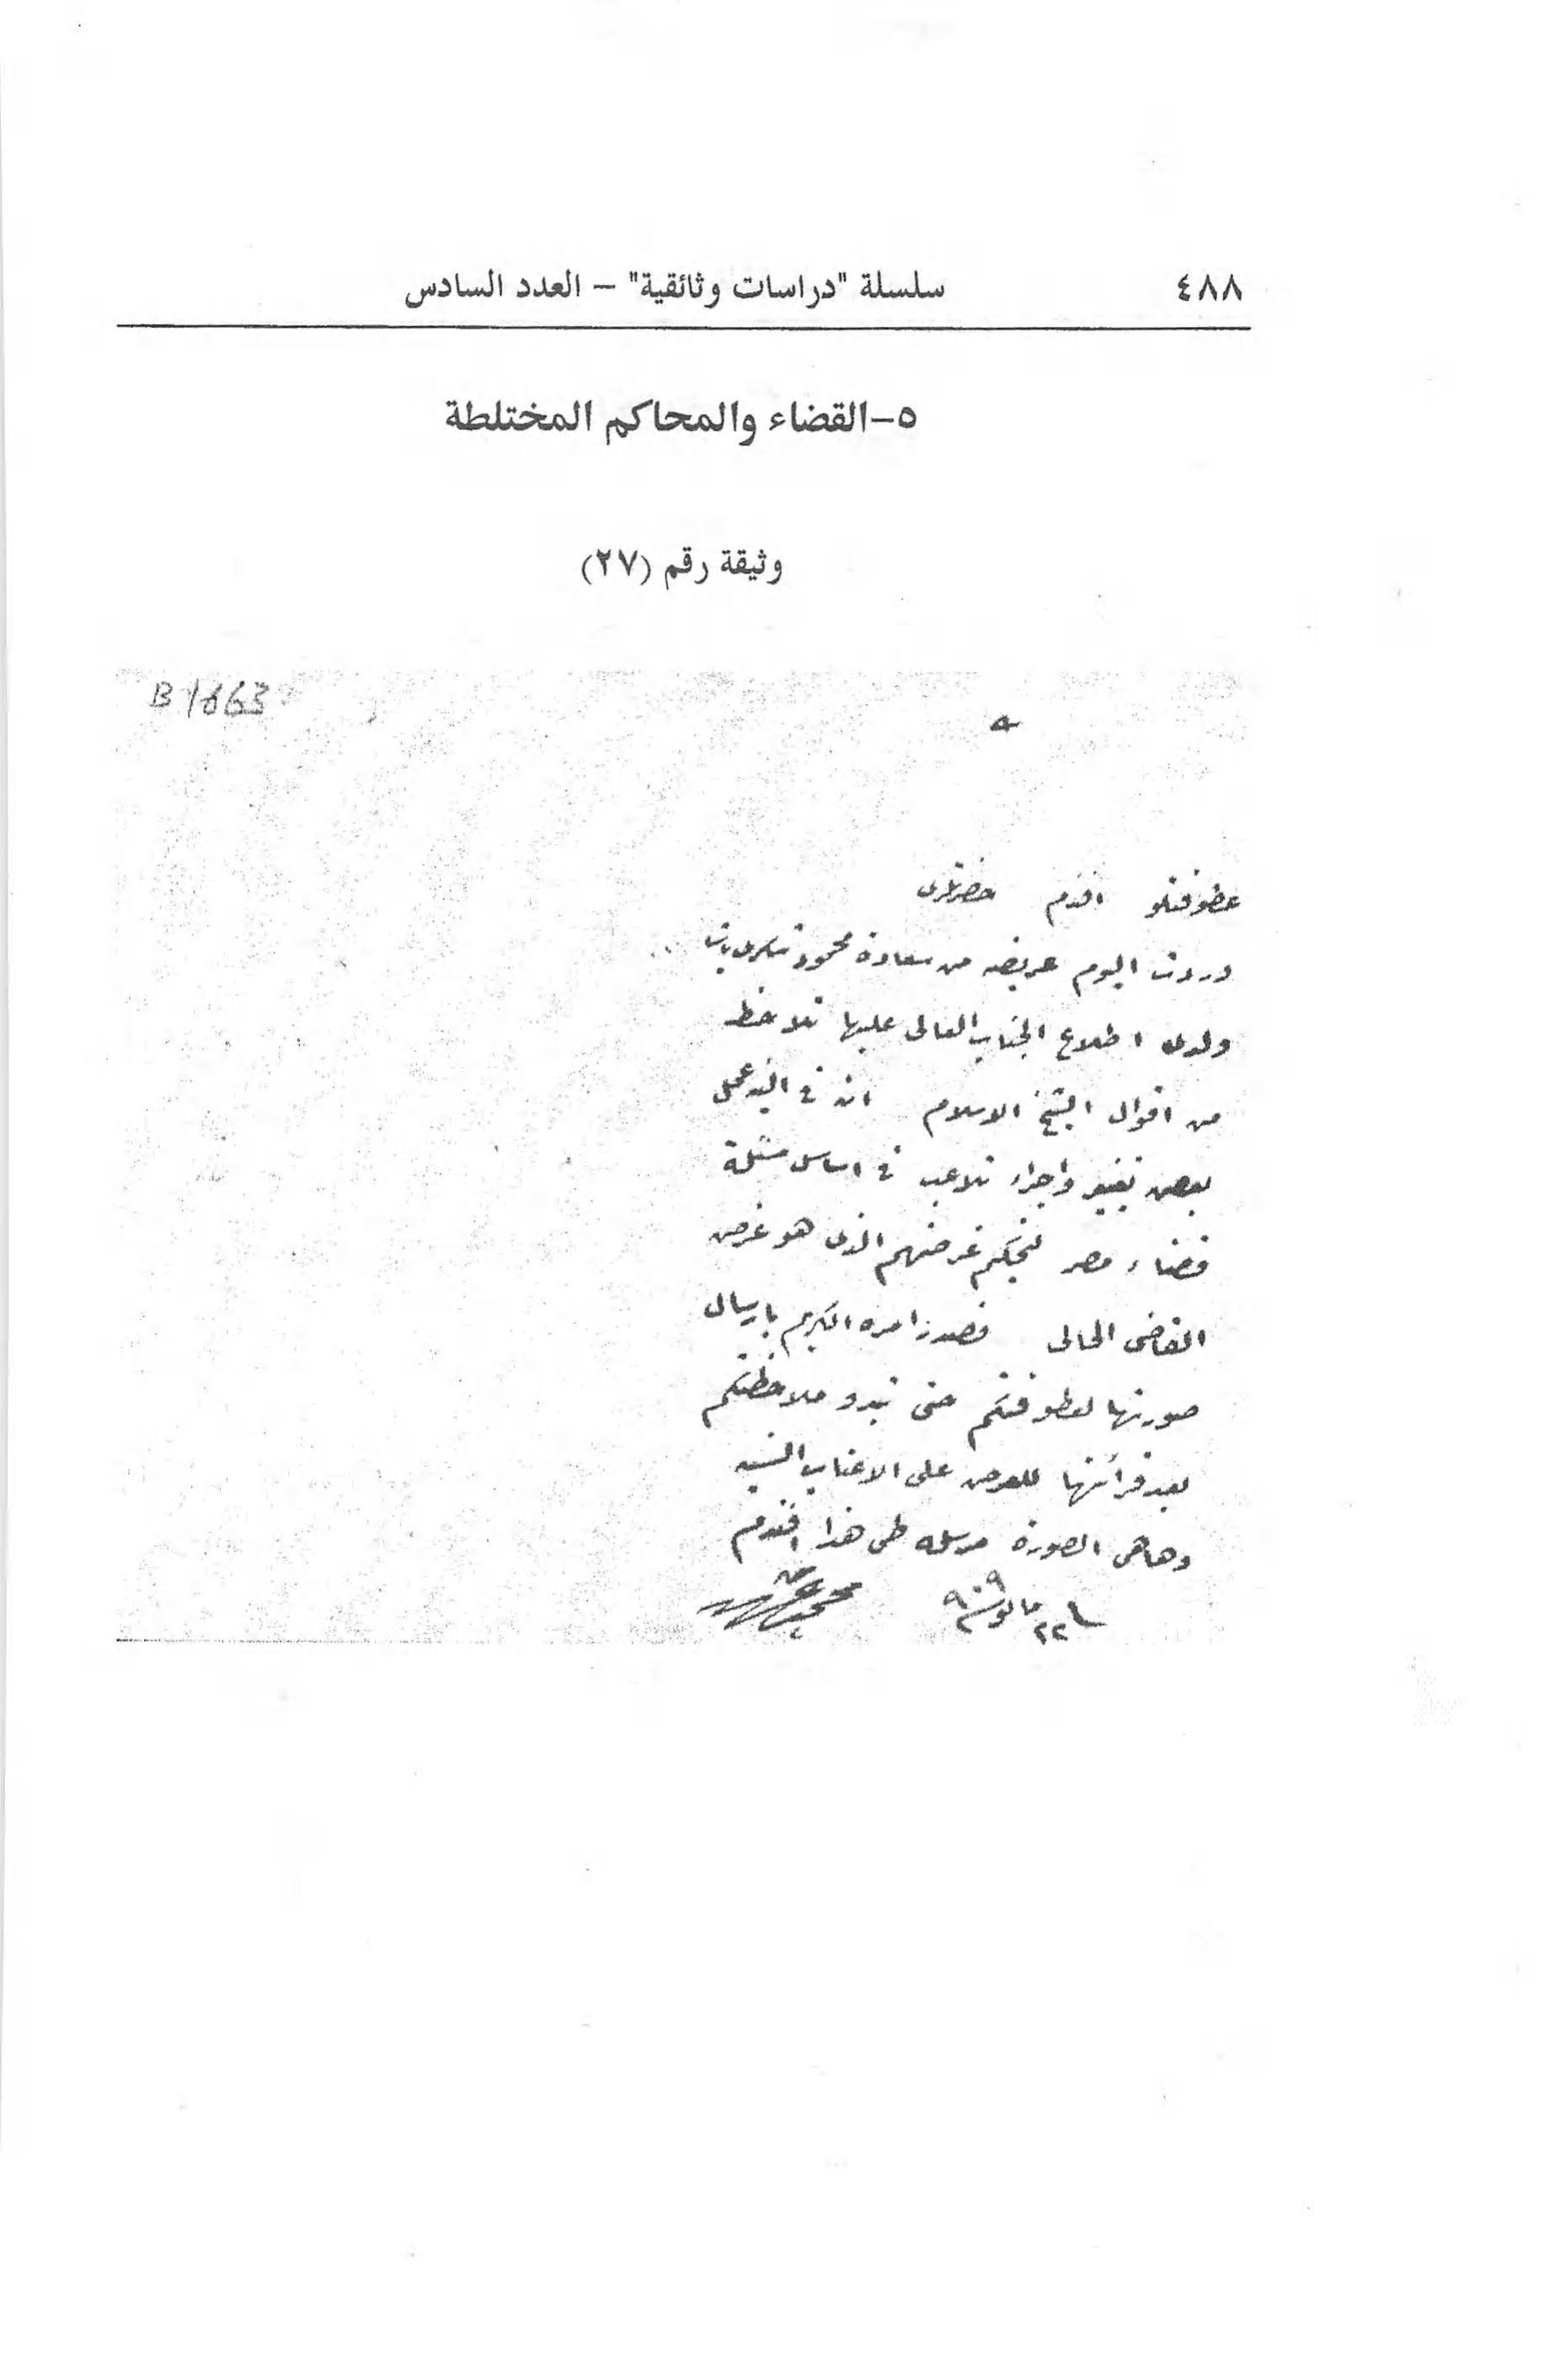 ٤٨٨
سلسلة "دراسات وثائقية" – العدد السادس
٥–القضاء والمحاكم المختلطة
وثيقة رقم (٢٧)
B 1863
عطوفتلو افندم حضرتلرى
وردت اليوم عريضه من سعادة محمود شكرى باشا
ولدى اطلاع الجناب العالى عليها تلاحظ
من اقوال الشيخ الاسلام ان فى النيه عمل
بعض تغيير واجراء تلاعب فى اساس مسئلة
قضاء مصر غرضهم الذى هو غرض
القاضى الحالى فصدر امره الكريم بارسال
صورتها لعطوفتكم حتى تبدو ملاحظتكم
بعد قرائتها للعرض على الاعتاب السنيه
وهاهى الصورة مرسله طى هذا افندم
٢٢ مايو سنة ٩٠٩